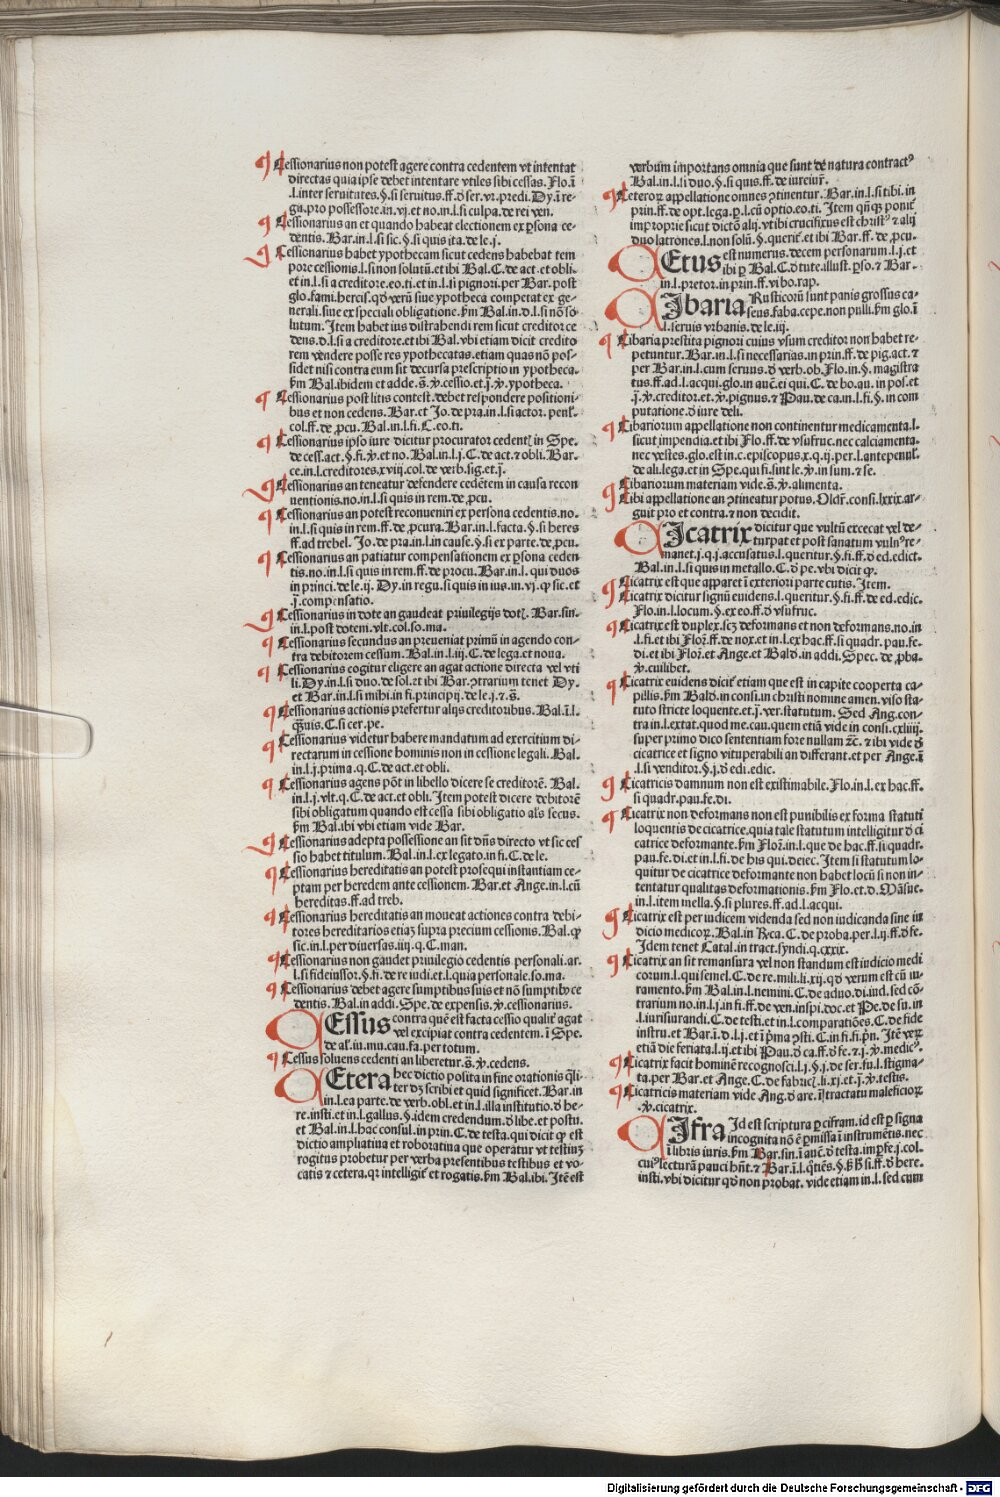 Cessionarius non potest agere contra cedentem vt intentat
directas quia ipse debet intentare vtiles sibi cessas. Flo.ī
.l.inter seruitutes.§.si seruitus.ff.đ ser.vr.predi. Dy.ī re-
gu.pro possessore.in.vj.et no.in.l.si culpa.de rei ven.
Cessionarius an et quando habeat electionem ex ꝑsona ce-
dentis. Bar.in.l.si sic.§.si quis ita.de le.j.
Cessionarius habet ypothecam sicut cedens habebat tem
pore cessionis.l.si non solutū.et ibi Bal.C.de act.et obli.
et in.l.si a creditore.eo.ti.et in.l.si pignori.per Bar.post
glo.fami.hercis.qđ verū siue ypotheca competat ex ge-
nerali.siue ex speciali obligatione.ꝓm Bal.in.d.l.si nō so-
lutum. Item habet ius distrahendi rem sicut creditor ce
dens.d.l.si a creditore.et ibi Bal.vbi etiam dicit credito
rem vendere posse res ypothecatas.etiam quas nō pos-
sidet nisi contra eum sit decursa prescriptio in ypotheca.
ꝓm Bal.ibidem et adde.s̄.ꝟ.cessio.et.j̄.ꝟ.ypotheca.
Cessionarius post litis contest.debet respondere positioni-
bus et non cedens. Bar.et Jo.de pra.in.l.si actor. penl.
col.ff.de ꝓcu. Bal.in.l.fi.C.eo.ti.
Cessionarius ipso iure dicitur procurator cedentꝭ in Spe.
de cess.act.§.fi.ꝟ.et no. Bal.in.l.j.C.de act.⁊ obli. Bar.
ce.in.l.creditores.xviij.col.de verb.sig.et.j̄.
Cessionarius an teneatur defendere cedētem in causa recon
uentionis.no.in.l.si quis in rem.de ꝓcu.
Cessionarius an potest reconueniri ex persona cedentis.no.
in.l.si quis in rem.ff.de ꝓcura. Bar.in.l.facta.§.si heres
ff.ad trebel. Jo.de pra.in.l.in cause.§.si ex parte.de ꝓcu.
Cessionarius an patiatur compensationem ex ꝑsona ceden
tis.no.in.l.si quis in rem.ff.de procu. Bar.in.l.qui duos
in princi.de le.ij. Dy.in regu.si quis in ius.in.vj.ꝙ sic.et
.j̄.compensatio.
Cessionarius in dote an gaudeat priuilegijs dotꝭ. Bar.sin.
in.l.post dotem.vlt.col.so.ma.
Cessionarius secundus an preueniat primū in agendo con-
tra debitorem cessum. Bal.in.l.iij.C.de lega.et noua.
Cessionarius cogitur eligere an agat actione directa vel vti
li. Dy.in.l.si duo.de sol.et ibi Bar.ꝯtrarium tenet Dy.
et Bar.in.l.si mihi.in fi.principij.de le.j.⁊.s̄.
Cessionarius actionis prefertur alijs creditoribus. Bal.ī.l.
.C.si cer.pe.
Cessionarius videtur habere mandatum ad exercitium di-
rectarum in cessione hominis non in cessione legali. Bal.
in.l.j.prima.q.C.de act.et obli.
Cessionarius agens pōt in libello dicere se creditorē. Bal.
in.l.j.vlt.q.C.de act.et obli. Item potest dicere debitorē
sibi obligatum quando est cessa sibi obligatio als secus.
ꝓm Bal.ibi vbi etiam vide Bar.
Cessionarius adepta possessione an sit dn̄s directo vt sic ces
sio habet titulum. Bal.in.l.ex legato.in fi.C.de le.
Cessionarius hereditatis an potest prosequi instantiam ce-
ptam per heredem ante cessionem. Bar.et Ange.in.l.cū
hereditas.ff.ad treb.
Cessionarius hereditatis an moueat actiones contra debi-
tores hereditarios etiaꝫ supra precium cessionis. Bal.ꝙ
sic.in.l.per diuersas.iiij.q.C.man.
Cessionarius non gaudet priuilegio cedentis personali.ar.
l.si fideiussor.§.fi.de re iudi.et.l.quia personale.so.ma.
Cessionarius debet agere sumptibus suis et nō sumptibꝰ ce
dentis. Bal.in addi. Spe.de expensis.ꝟ.cessionarius.
CEssus contra quē est facta cessio qualiꝉ agat
vel excipiat contra cedentem.ī Spe.
de al.iu.mu.cau.fa.per totum.
Cessus soluens cedenti an liberetur.s̄.ꝟ.cedens.
CEtera hec dictio posita in fine orationis qͥli-
ter dꝫ scribi et quid significet. Bar.in
in.l.ea parte.de verb.obl.et in.l.illa institutio.đ he-
re.insti.et in.l.gallus.§.idem credendum.đ libe.et postu.
et Bal.in.l.hac consul.in prin.C.de testa.qui dicit ꝙ est
dictio ampliatiua et roboratiua que operatur vt testiuꝫ
rogitus probetur per verba presentibus testibus et vo-
catis ⁊ cetera.qr intelligit̄ et rogatis.ꝓm Bal.ibi. Itē est
verbum importans omnia que sunt de natura contractꝰ
Bal.in.l.si duo.§.si quis.ff.de iureiur̄.
Ceteroꝝ appellatione omnes ꝯtinentur. Bar.in.l.si tibi.in
prin.ff.de opt.lega.ꝑ.l.cū optio.eo.ti. Item qn̄qꝫ ponit̄
improprie sicut dictō alij.vt ibi crucifixus est christꝰ ⁊ alij
duo latrones.l.non solū.§.querit̄.et ibi Bar.ff.de ꝓcu.
CEtus est numerus.decem personarum.l.j.et
ibi ꝑ Bal.C.đ tute.illust.ꝑso.⁊ Bar.
in.l.pretor.in prin.ff.vi bo.rap.
CIbaria Rusticorū sunt panis grossus ca-
seus.faba.cepe.non pulli.ꝓm glo.ī
l.seruis vrbanis.de le.iij.
Cibaria prestita pignori cuius vsum creditor non habet re-
petuntur. Bar.in.l.si necessarias.in prin.ff.de pig.act.⁊
per Bar.in.l.cum seruus.đ verb.ob. Flo.in.§.magistra
tus.ff.ad.l.acqui.glo.in auc̄.ei qui.C.de bo.au.in pos.et
.j̄.ꝟ.creditor.et.ꝟ.pignus.⁊ Pau.de ca.in.l.fi.§.in com
putatione.đ iure deli.
Cibariorum appellatione non continentur medicamenta.l.
sicut impendia.et ibi Flo.ff.de vsufruc.nec calciamenta.
nec vestes.glo.est in.c.episcopus.x.q.ij.per.l.antepenul.
de ali.lega.et in Spe.qui fi.sint le.ꝟ.in sum.⁊ se.
Cibariorum materiam vide.s̄.ꝟ.alimenta.
Cibi appellatione an ꝯtineatur potus. Oldr̄.consi.lxxix.ar-
guit pro et contra.⁊ non decidit.
CIcatrix dicitur que vultū excecat vel de-
turpat et post sanatum vulnꝰ re-
manet.j.q.j.accusatus.l.queritur.§.fi.ff.đ ed.edict.
Bal.in.l.si quis in metallo.C.đ pe.vbi dicit ꝙ.
Cicatrix est que apparet ī exteriori parte cutis. Item.
Cicatrix dicitur signū euidens.l.queritur.§.fi.ff.de ed.edic.
Flo.in.l.locum.§.ex eo.ff.đ vsufruc.
Cicatrix est duplex.scꝫ deformans et non deformans.no.in
.l.fi.et ibi Flor̄.ff.de nox.et in.l.ex hac.ff.si quadr.pau.fe.
di.et ibi Flor̄.et Ange.et Bald.in addi. Spec.de ꝓba.
ꝟ.cuilibet.
Cicatrix euidens dicit̄ etiam que est in capite cooperta ca-
pillis.ꝓm Bald.in consi.in christi nomine amen.viso sta-
tuto stricte loquente.et.j̄.ver.statutum. Sed Ang.con-
tra in.l.extat.quod me.cau.quem etiā vide in consi.cxliiij.
super primo dico sententiam fore nullam ⁊c̄.⁊ ibi vide đ
cicatrice et signo vituperabili an differant.et per Ange.ī
l.si venditor.§.j.đ edi.edic.
Cicatricis damnum non est existimabile. Flo.in.l.ex hac.ff.
si quadr.pau.fe.di.
Cicatrix non deformans non est punibilis ex forma statuti
loquentis de cicatrice.quia tale statutum intelligitur đ ci
catrice deformante.ꝓm Flor̄.in.l.que de hac.ff.si quadr.
pau.fe.di.et in.l.fi.de his qui.deiec. Item si statutum lo-
quitur de cicatrice deformante non habet locū si non in-
tentatur qualitas deformationis.ꝓm Flo.et.d. Māsue.
in.l.item mella.§.si plures.ff.ad.l.acqui.
Cicatrix est per iudicem videnda sed non iudicanda sine iu
dicio medicoꝝ. Bal.in Rca.C.de proba.per.l.ij.ff.đ fe.
Idem tenet Catal.in tract.syndi.q.cxxix.
Cicatrix an sit remansura vel non standum est iudicio medi
corum.l.qui semel.C.de re.mili.li.xij.qđ verum est cū iu-
ramento.ꝓm Bal.in.l.nemini.C.de aduo.di.iud.sed cō-
trarium no.in.l.j.in fi.ff.de ven.inspi.doc.et Pe.de su.in
.l.iurisiurandi.C.de testi.et in.l.comparatiōes.C.de fide
instru.et Bar.ī.d.l.j.et ī pͥma ꝯsti.C.in fi.fi.pn̄. Itē veꝝ
etiā die feriata.l.ij.et ibi Pau.đ ca.ff.đ fe.⁊.j̄.ꝟ.medicꝰ.
Cicatrix facit hominē recognosci.l.j.§.j.de ser.fu.l.stigma-
ta.per Bar.et Ange.C.de fabricꝭ.li.xj.et.j̄.ꝟ.testis.
Cicatricis materiam vide Ang.đ are.ī tractatu maleficioꝝ
.ꝟ.cicatrix.
CIfra Id est scriptura ꝑ cifram.id est ꝑ signa
incognita nō ē ꝑmissa ī instrumētis.nec
ī libris iuris.ꝓm Bar.sin.ī auc̄.đ testa.imꝑfe.j.col.
cuiꝰ lecturā pauci hn̄t.⁊ Bar.ī.l.qͦtiēs.§.ff.đ here.
insti.vbi dicitur qđ non probat. vide etiam in.l.sed cum
Digitalisierung gefördert durch die Deutsche Forschungsgemeinschaft - DFG